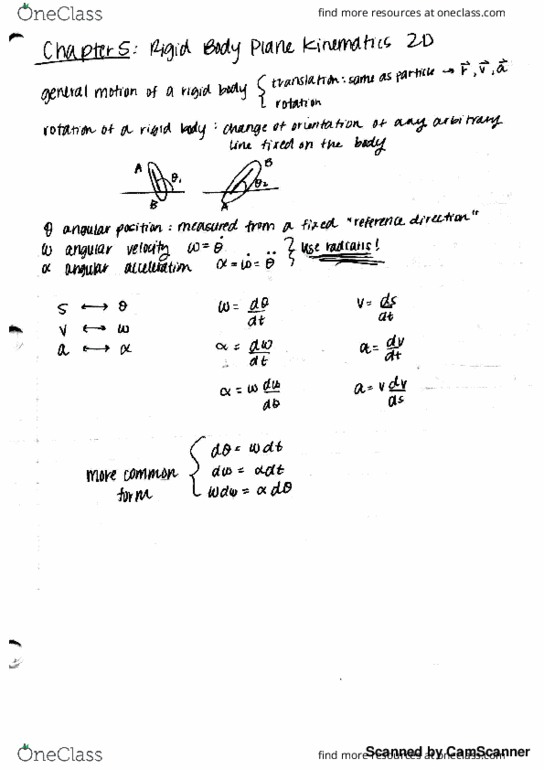 OneClass
find more resources at oneclass.com
Chapter 5: Rigid Body Plane Kinematics 2D
general motion of a rigid body { translation: same as particle → r⃗, v⃗, a⃗
rotation
rotation of a rigid body : change of orientation of any arbitrary
line fixed on the body
A θ₁ B
B θ₂ A
θ angular position : measured from a fixed "reference direction"
ω angular velocity ω = θ̇ } use radians!
α angular acceleration α = ω̇ = θ̈
s ↔ θ ω = dθ/dt v = ds/dt
v ↔ ω
a ↔ α α = dω/dt a = dv/dt
α = ω dω/dθ a = v dv/ds
more common form { dθ = ωdt
dω = αdt
ωdω = α dθ
OneClass
find more resources at oneclass.com
Scanned by CamScanner